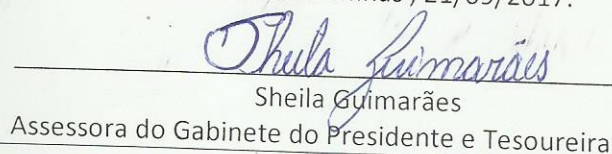 21/09/2017.
Sheila Guimarães
Sheila Guimarães
Assessora do Gabinete do Presidente e Tesoureira